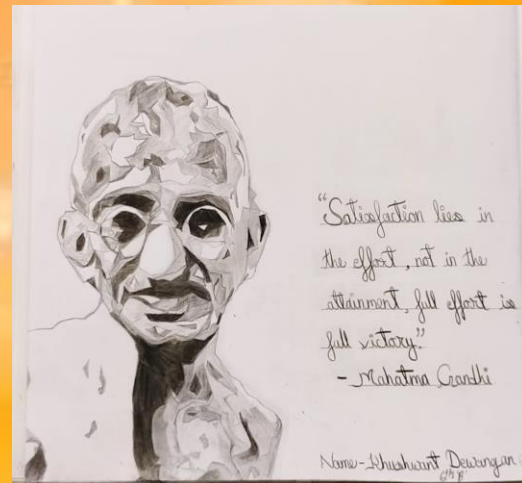 "Satisfaction lies in
the effort, not in the
attainment, full effort is
full victory."
- Mahatma Gandhi
Name - Khushwant Dewangan
6th 'B'